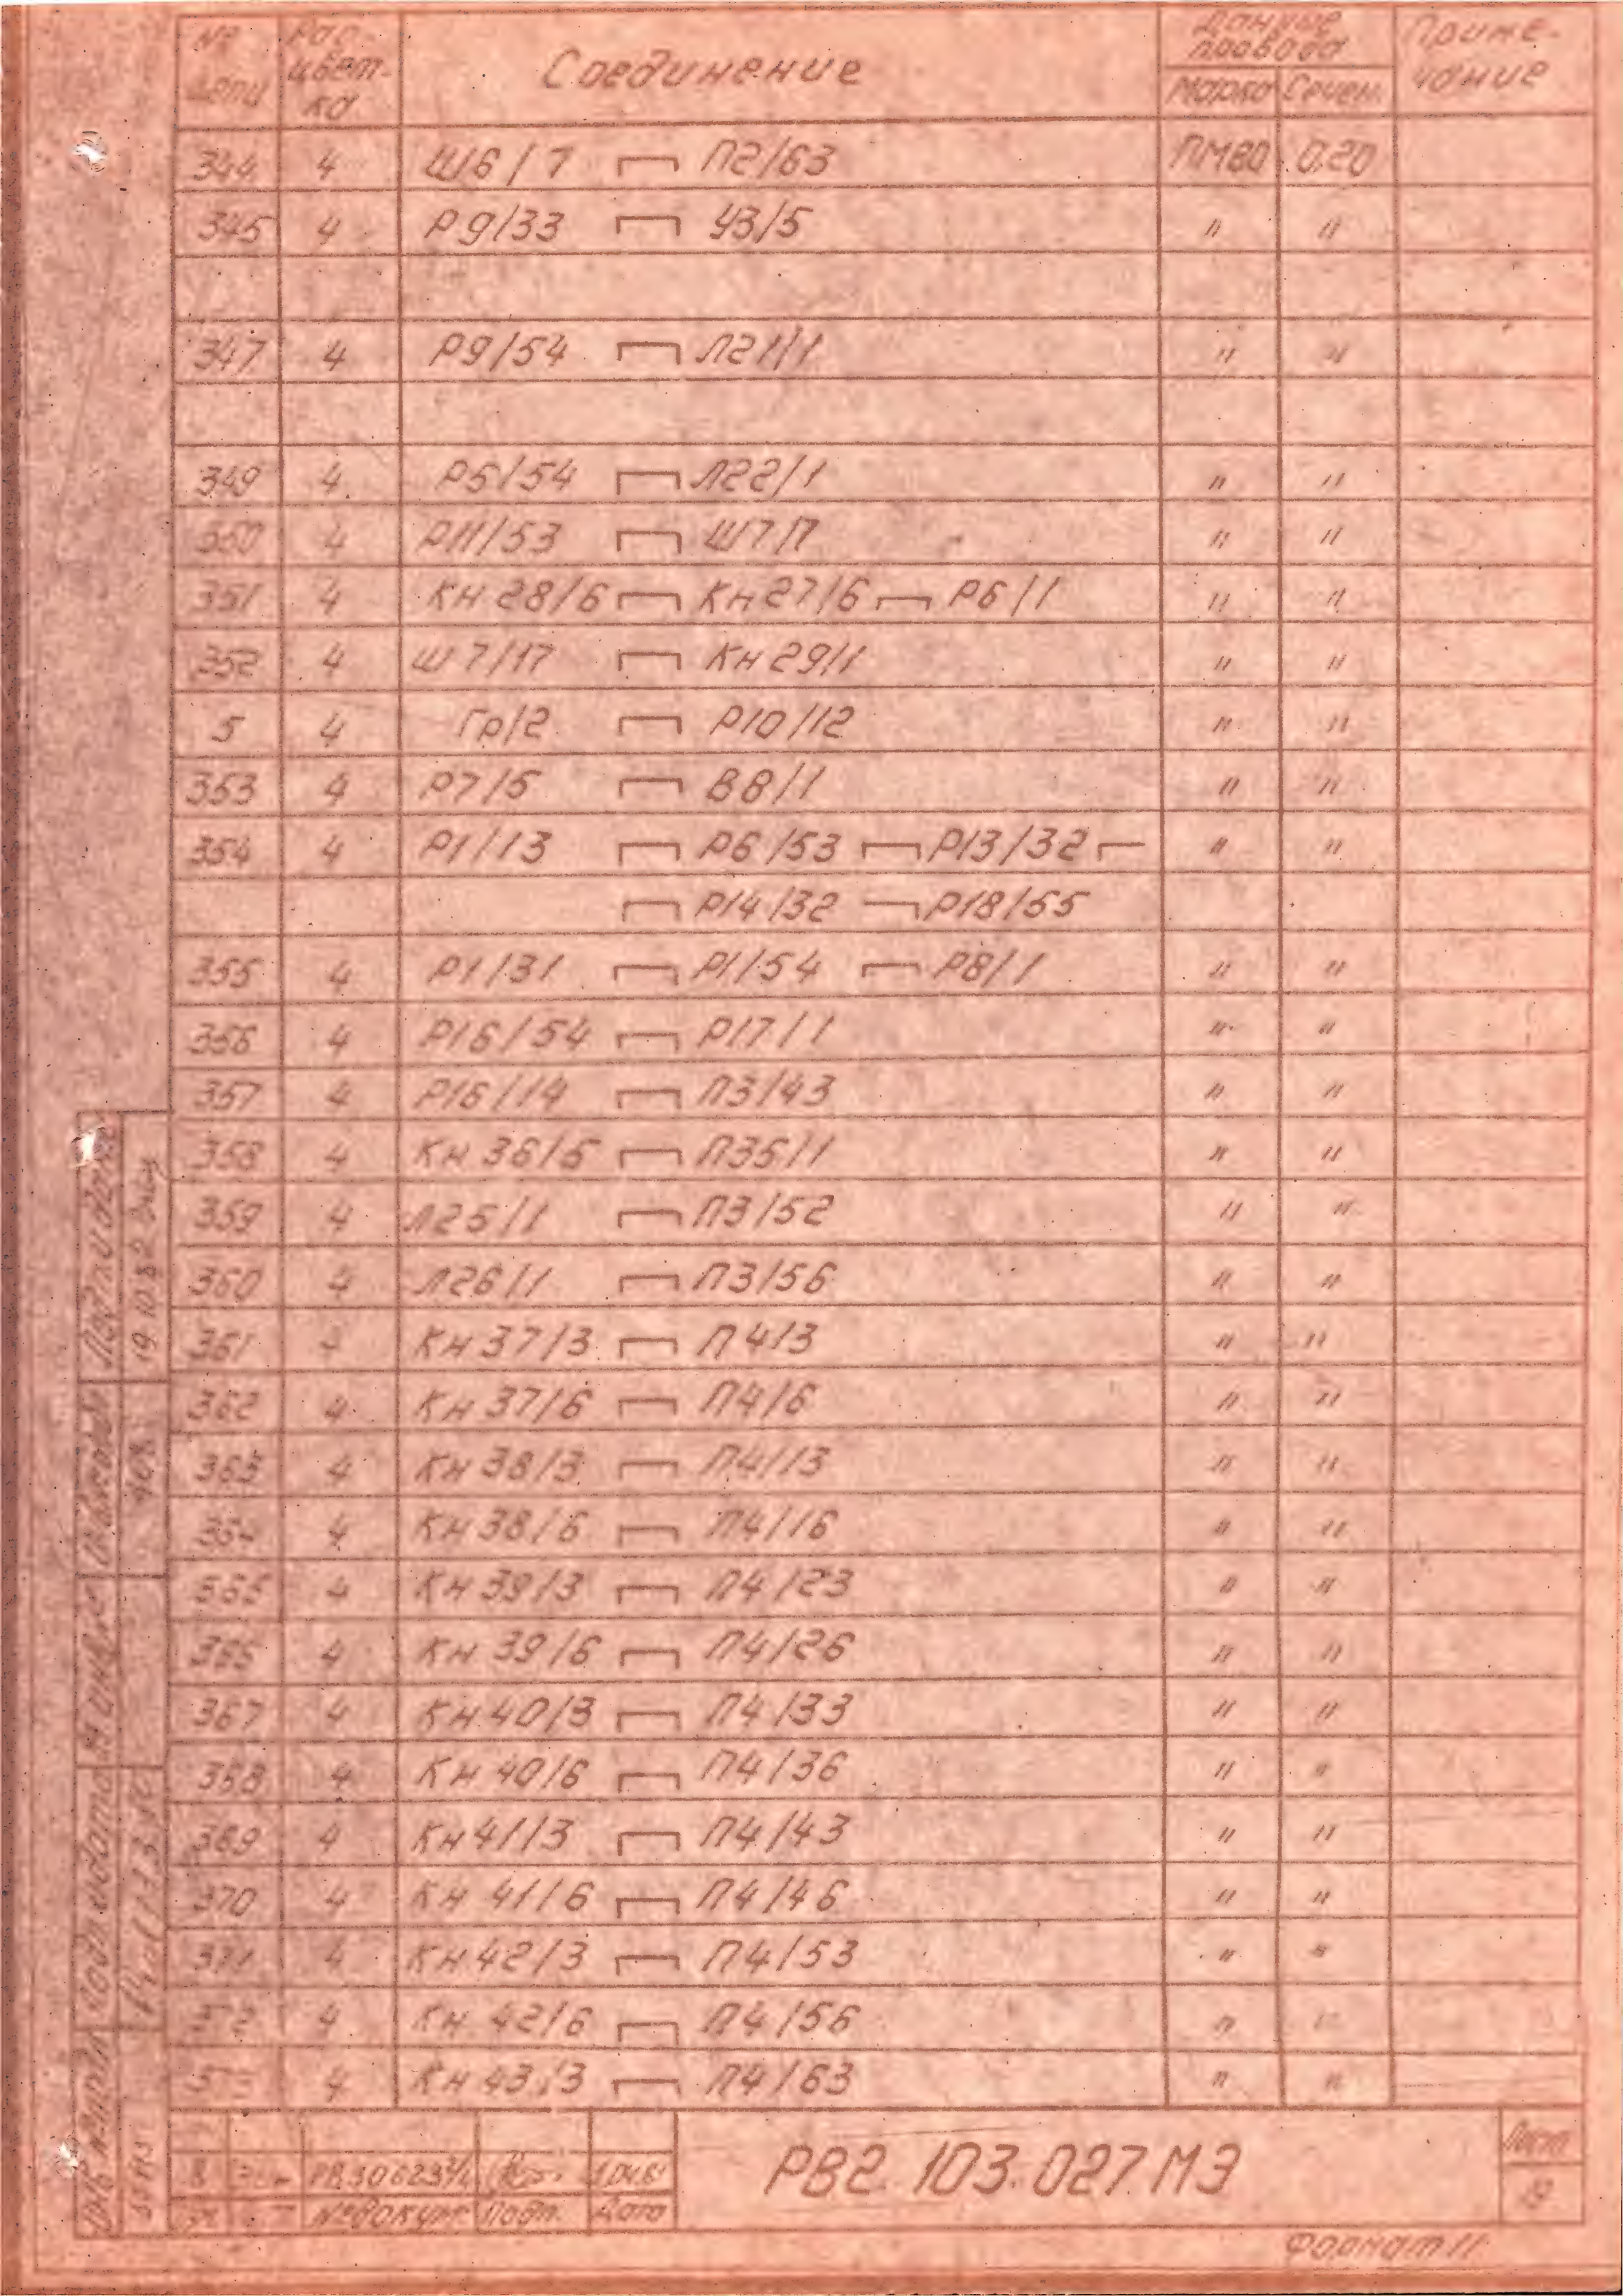 № цепи Рас-цвет-ка Соединение Данные провода Приме-чание
Марка Сечен.
344 4 Ш6/7 ┌┐ П2/63 ПМВО 0.20
345 4 Р9/33 ┌┐ У3/5 " "
347 4 Р9/54 ┌┐ Л21/1 " "
349 4 Р5/54 ┌┐ Л22/1 " "
350 4 Р11/53 ┌┐ Ш7/7 " "
351 4 Кн28/6 ┌┐ Кн27/6 ┌┐ Р6/1 " "
352 4 Ш7/17 ┌┐ Кн29/1 " "
5 4 Гр/2 ┌┐ Р10/12 " "
353 4 Р7/5 ┌┐ В8/1 " "
354 4 Р1/13 ┌┐ Р6/53 ┌┐ Р13/32 ┌
┌┐ Р14/32 ┌┐ Р18/55 " "
355 4 Р1/31 ┌┐ Р1/54 ┌┐ Р8/1 " "
356 4 Р16/54 ┌┐ Р17/1 " "
357 4 Р16/14 ┌┐ П3/43 " "
358 4 Кн36/6 ┌┐ П35/1 " "
359 4 Л25/1 ┌┐ П3/52 " "
360 4 Л26/1 ┌┐ П3/56 " "
361 4 Кн37/3 ┌┐ П4/3 " "
362 4 Кн37/6 ┌┐ П4/6 " "
363 4 Кн38/3 ┌┐ П4/13 " "
364 4 Кн38/6 ┌┐ П4/16 " "
365 4 Кн39/3 ┌┐ П4/23 " "
366 4 Кн39/6 ┌┐ П4/26 " "
367 4 Кн40/3 ┌┐ П4/33 " "
368 4 Кн40/6 ┌┐ П4/36 " "
369 4 Кн41/3 ┌┐ П4/43 " "
370 4 Кн41/6 ┌┐ П4/46 " "
371 4 Кн42/3 ┌┐ П4/53 " "
372 4 Кн42/6 ┌┐ П4/56 " "
4 Кн43/3 ┌┐ П4/63 " "
Подп и дата
19.10.82
№ докум. Подп. Дата
РВ2.103.027МЭ
Лист
19
Формат 11